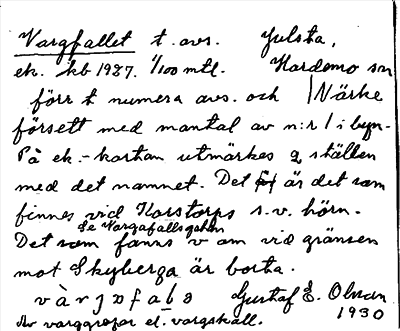 Vargfallet t. avs. Julsta,
ek. kb 1987. 1/100 mtl. Hardemo sn
förr t numera avs. och Närke
försett med mantal av n:r 1 i byn.
På ek.-kartan utmärkes 2 ställen
med det namnet. Det är det som
finnes vid Korstorps s.v. hörn.
Se Vargafallsgatan
Det som fanns v om vid gränsen
mot Skyberga är borta.
Gustaf E. Olsson
Av varggropar el. vargskall. 1930